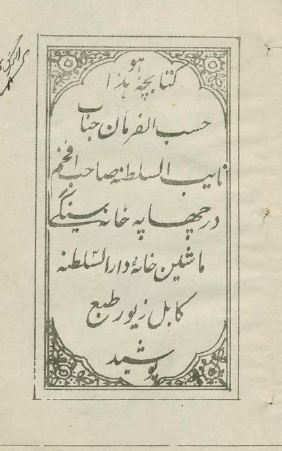 هو
کتابچهٔ هذا
حسب الفرمان جناب
نایب السلطنه صاحب افخم
در چهاپه خانه سنگی
ماشین خانهٔ دارالسلطنه
کابل زیور طبع
پوشید